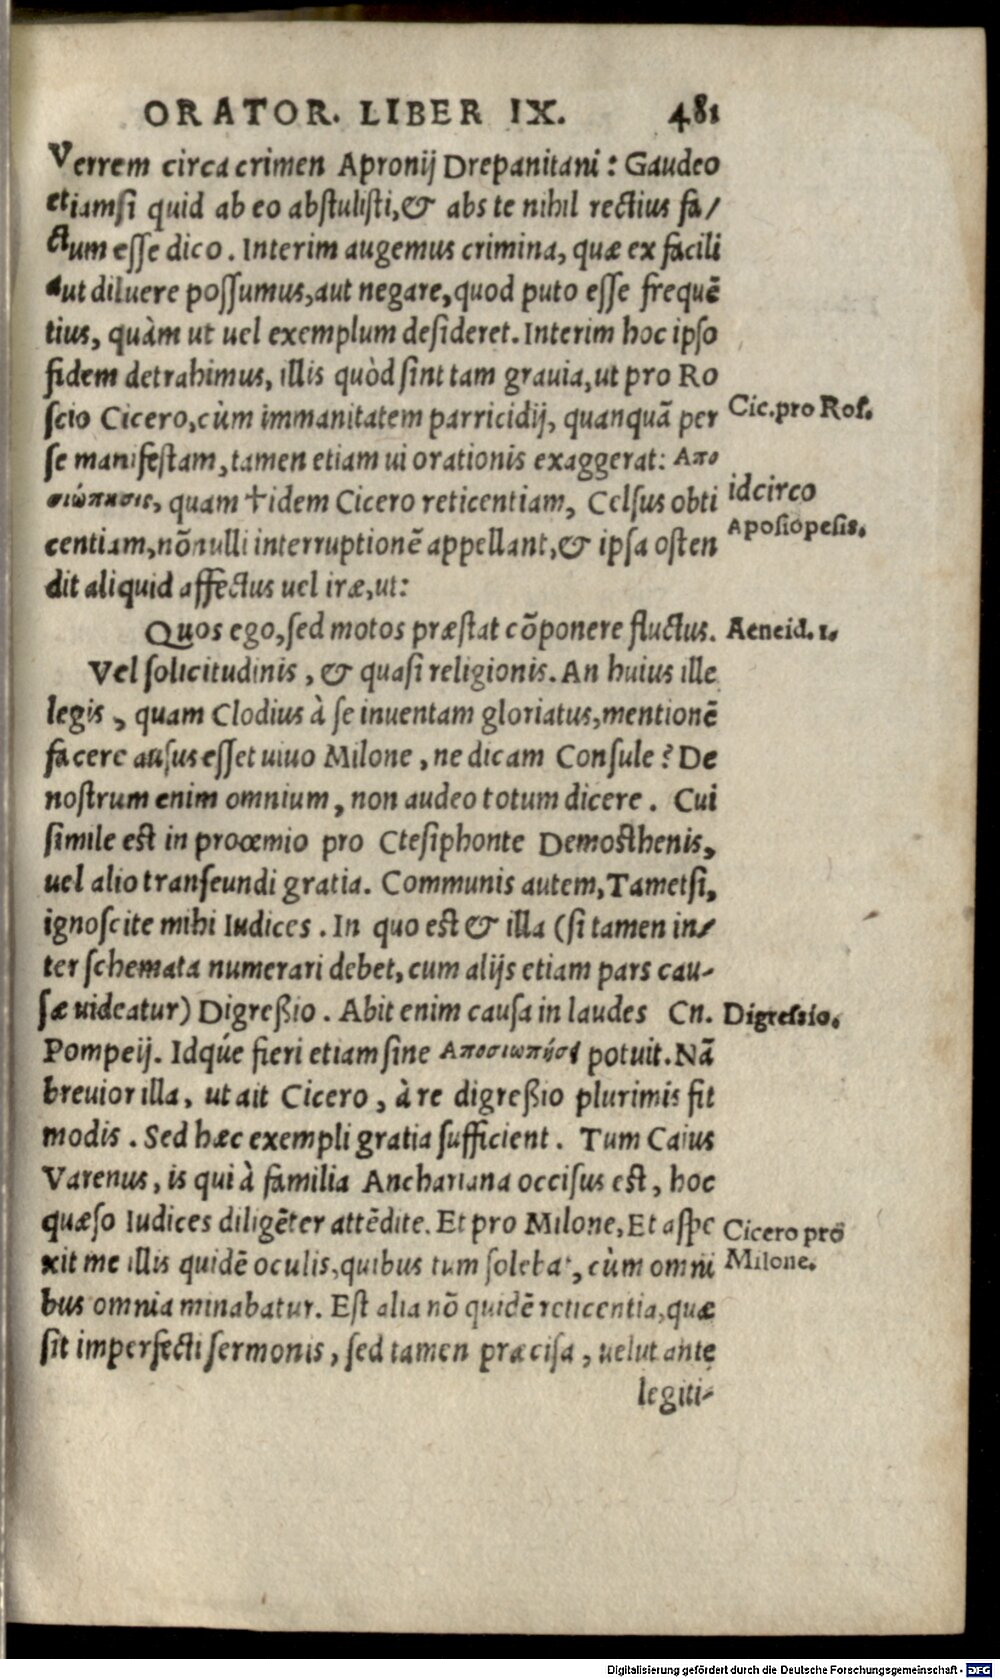 ORATOR. LIBER IX. 481
Verrem circa crimen Apronij Drepanitani: Gaudeo
etiamsi quid ab eo abstulisti, & abs te nihil rectius fa/
ctum esse dico. Interim augemus crimina, quæ ex facili
aut diluere possumus, aut negare, quod puto esse frequẽ
tius, quàm ut uel exemplum desideret. Interim hoc ipso
fidem detrahimus, illis quòd sint tam grauia, ut pro Ro
scio Cicero, cùm immanitatem parricidij, quanquã per
Cic. pro Ros.
se manifestam, tamen etiam ui orationis exaggerat: Απο
σιώπησις, quam †idem Cicero reticentiam, Celsus obti
idcirco
Aposiopesis.
centiam, nõnulli interruptionẽ appellant, & ipsa osten
dit aliquid affectus uel iræ, ut:
Quos ego, sed motos præstat cõponere fluctus.
Aeneid. 1.
Vel solicitudinis, & quasi religionis. An huius ille
legis, quam Clodius à se inuentam gloriatus, mentionẽ
facere ausus esset uiuo Milone, ne dicam Consule? De
nostrum enim omnium, non audeo totum dicere. Cui
simile est in proœmio pro Ctesiphonte Demosthenis,
uel alio transeundi gratia. Communis autem, Tametsi,
ignoscite mihi Iudices. In quo est & illa (si tamen in/
ter schemata numerari debet, cum alijs etiam pars cau-
sæ uideatur) Digreßio. Abit enim causa in laudes Cn.
Digressio.
Pompeij. Idq́ue fieri etiam sine Αποσιωπήσει potuit. Nã
breuior illa, ut ait Cicero, à re digreßio plurimis fit
modis. Sed hæc exempli gratia sufficient. Tum Caius
Varenus, is qui à familia Anchariana occisus est, hoc
quæso Iudices diligẽter attẽdite. Et pro Milone, Et aspe
Cicero pro
xit me illis quidẽ oculis, quibus tum solebat, cùm omni
Milone.
bus omnia minabatur. Est alia nõ quidẽ reticentia, quæ
sit imperfecti sermonis, sed tamen præcisa, uelut ante
legiti-
Digitalisierung gefördert durch die Deutsche Forschungsgemeinschaft - DFG